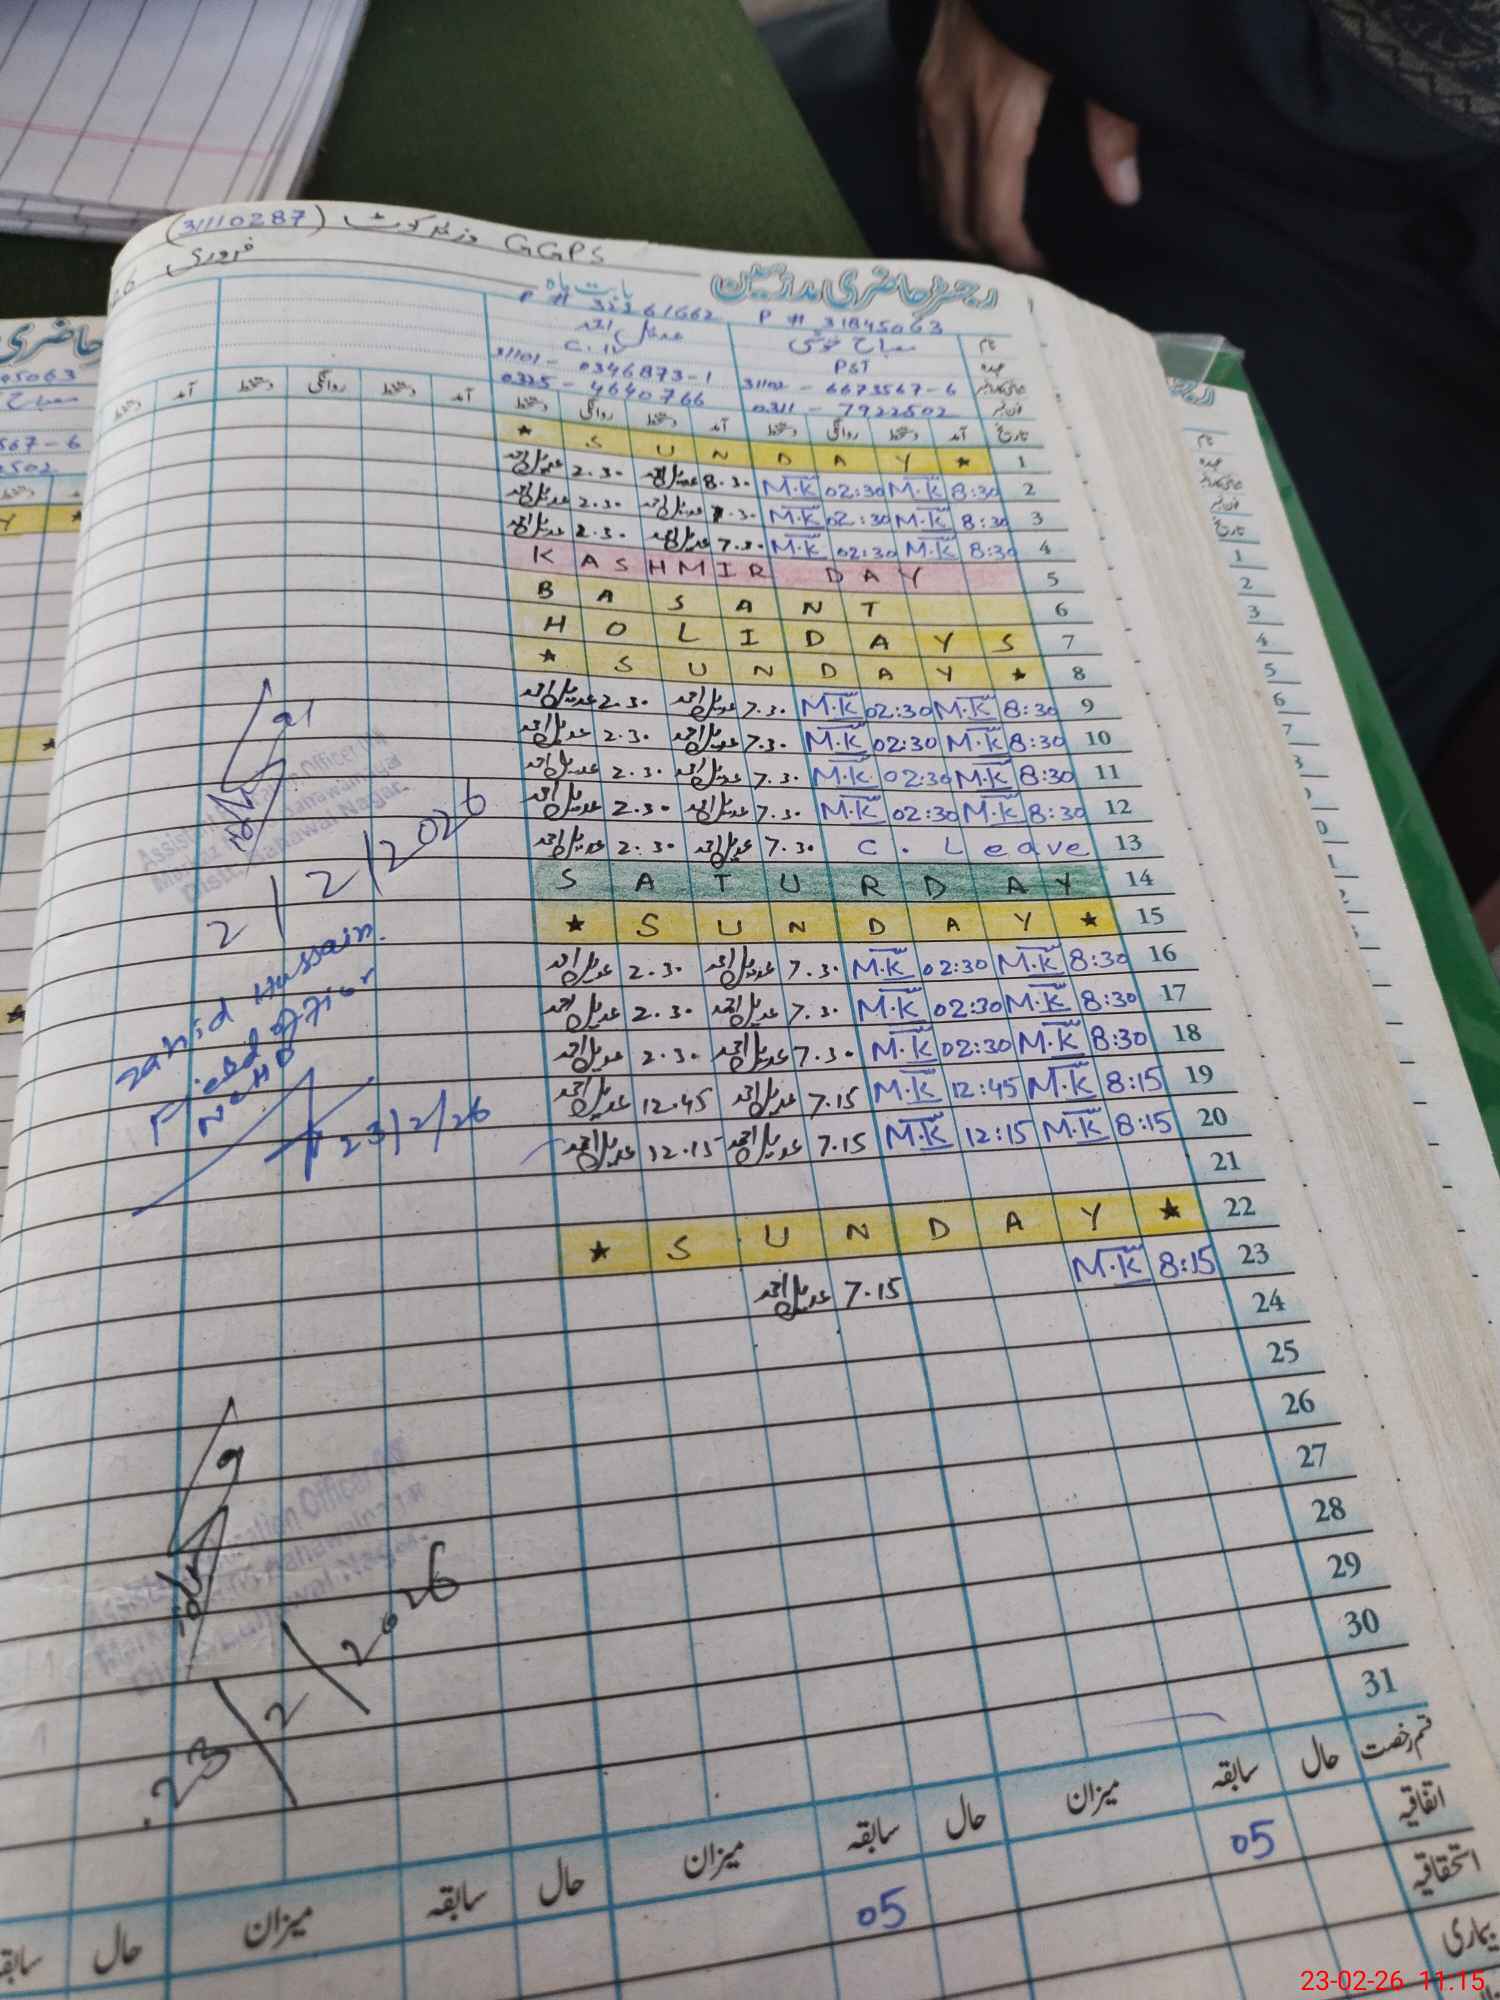 (31110287) وزیر کوٹ GGPS
فروری
رجسٹر حاضری ملازمین
بابت ماہ
P # 31845063
P # 32261662
نام
مصباح خوشی
عدیل احمد
عہدہ
PST
31102 - 6673567-6
31101 - 0346873-1
فون نمبر
0311 - 7922502
0325 - 4640766
تاریخ آمد دستخط روانگی دستخط آمد دستخط روانگی دستخط آمد دستخط روانگی دستخط آمد دستخط
1 ★ S U N D A Y ★
2 8:30 M.K 02:30 M.K 8.30 عدیل احمد 2.30 عدیل احمد
3 8:30 M.K 02:30 M.K 7.30 عدیل احمد 2.30 عدیل احمد
4 8:30 M.K 02:30 M.K 7.30 عدیل احمد 2.30 عدیل احمد
5 K A S H M I R D A Y
6 B A S A N T
7 H O L I D A Y S
8 ★ S U N D A Y ★
9 8:30 M.K 02:30 M.K 7.30 عدیل احمد 2.30 عدیل احمد
10 8:30 M.K 02:30 M.K 7.30 عدیل احمد 2.30 عدیل احمد
11 8:30 M.K 02:30 M.K 7.30 عدیل احمد 2.30 عدیل احمد
12 8:30 M.K 02:30 M.K 7.30 عدیل احمد 2.30 عدیل احمد
13 C. Leave 7.30 عدیل احمد 2.30 عدیل احمد
14 S A T U R D A Y
15 ★ S U N D A Y ★
16 8:30 M.K 02:30 M.K 7.30 عدیل احمد 2.30 عدیل احمد
17 8:30 M.K 02:30 M.K 7.30 عدیل احمد 2.30 عدیل احمد
18 8:30 M.K 02:30 M.K 7.30 عدیل احمد 2.30 عدیل احمد
19 8:15 M.K 12:45 M.K 7.15 عدیل احمد 12.45 عدیل احمد
20 8:15 M.K 12:15 M.K 7.15 عدیل احمد 12.15 عدیل احمد
21
22 ★ S U N D A Y ★
23 8:15 M.K 7.15 عدیل احمد
24
25
26
27
28
29
30
31
Assistant Officer
2/2/2026
Zahid Hussain
Field officer
23/2/26
Assistant Officer
23/2/2026
قسم رخصت حال سابقہ میزان حال سابقہ میزان حال سابقہ میزان حال سابقہ
اتفاقیہ 05 05
استحقاقیہ
بیماری
23-02-26 11.15